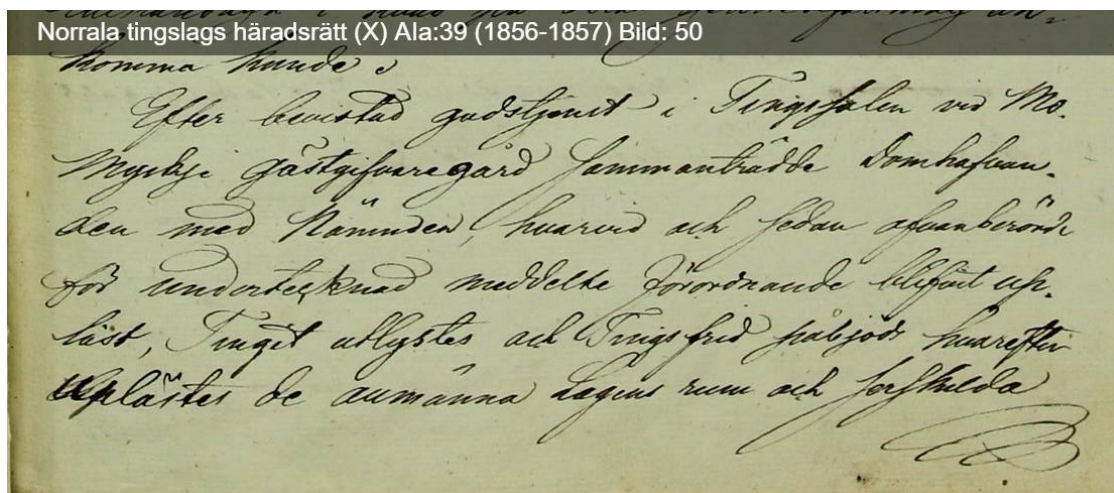 Norrala tingslags häradsrätt (X) AIa:39 (1856-1857) Bild: 50
komma kunde.
Efter bevistad gudstjenst i Tingssalen vid Mo-
Myskje gästgifvaregård sammanträdde Domhafvan-
den med Nämnden, hvarvid och sedan ofvanberörde
för undertecknad meddelte förordnande blifvit up-
läst, Tinget utlystes och Tingsfrid påbjöds hvarefter
uplästes de allmänna Lagens rum och serskilda